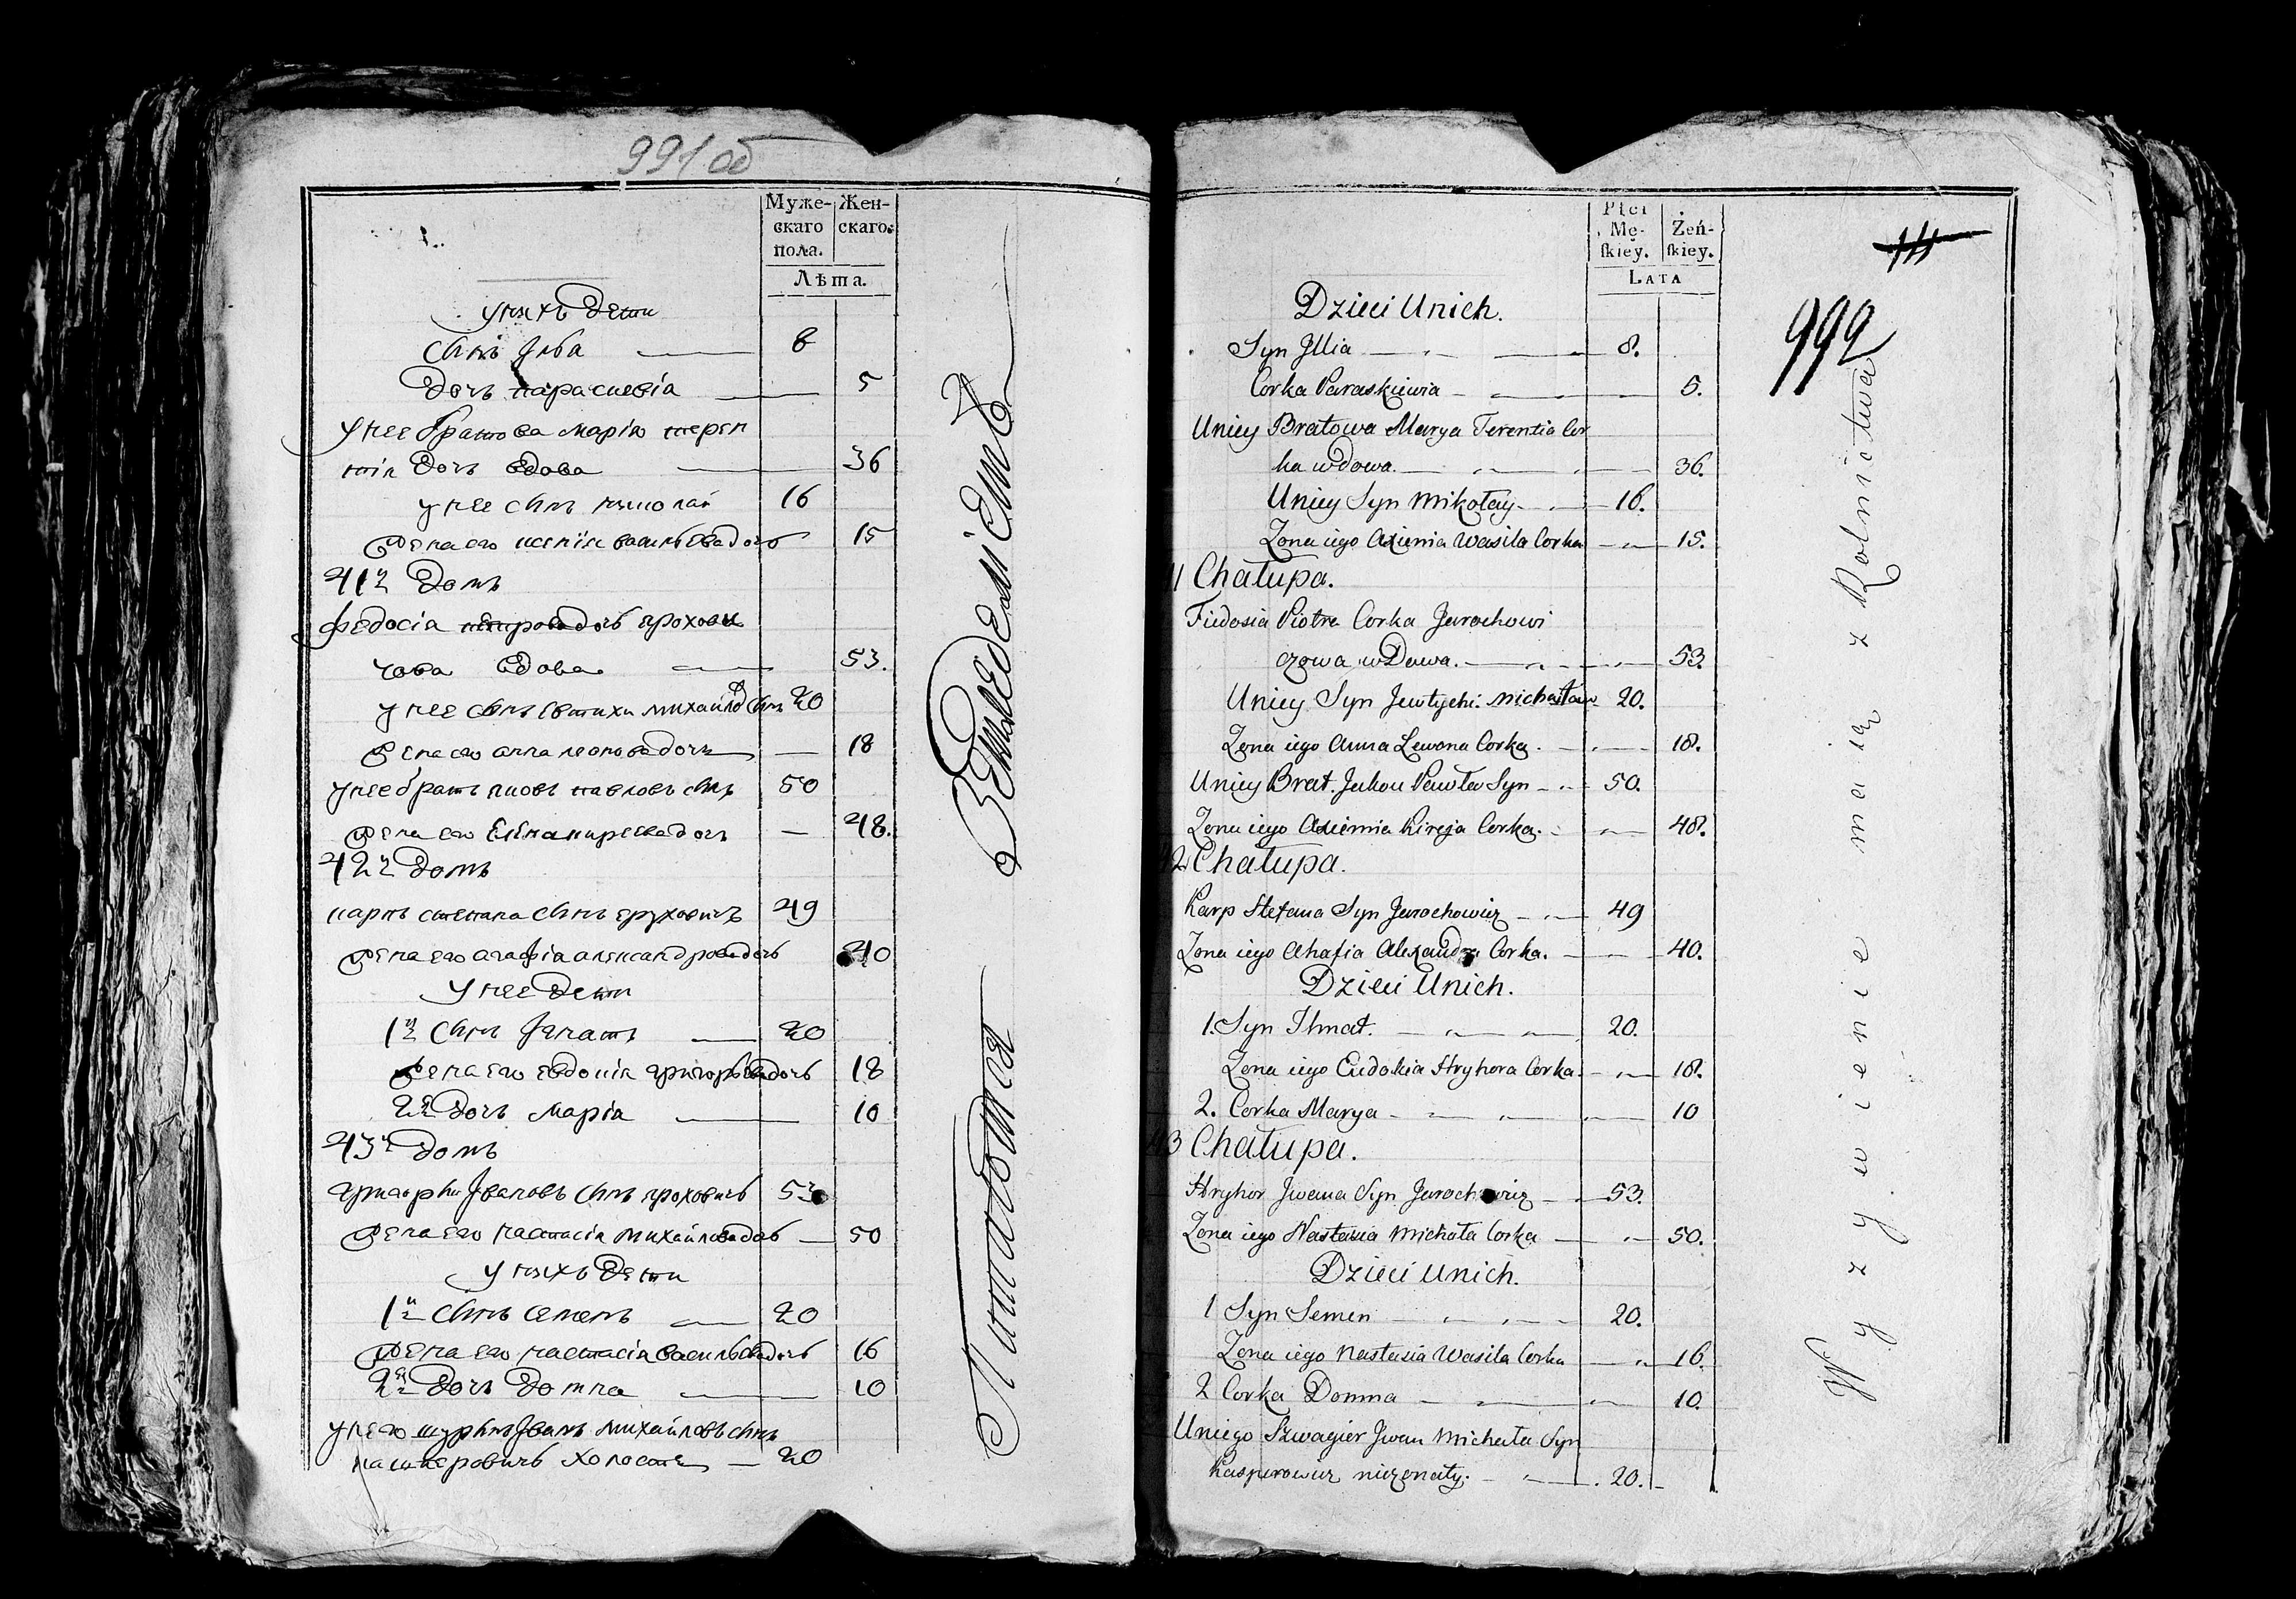 991 об
Муже-
скаго
пола.
Жен-
скаго.
Лѣта.
у нихъ дети
Сынъ Илья 8
Дочь параскевія 5
у нее братова марія терен
тія дочь вдова 36
у нее сынъ николай 16
жена его ксенія васильева дочь 15
41й Домъ
федосія петрова дочь ярохови
чова вдова 53.
у нее сынъ евтихи михайлов сынъ 20
жена его анна леонова дочь — 18
у нее братъ яковъ павловъ сынъ 50
жена его Елена киреева дочь — 48.
42й Домъ
карпъ степана сынъ яруховичъ 49
жена его агафія александрова дочь 40
у нее дети
1й сынъ Игнатъ 20
жена его евдокія григорьева дочь 18
2я дочь марія 10
43й домъ
григорьи Ивановъ сынъ яроховичъ 53
жена его настасія михайлова дочь — 50
у нихъ дети
1й сынъ семенъ 20
жена его настасія васильева дочь 16
2я дочь домна 10
у него шуринъ Иванъ михайловъ сынъ
касперовичъ холостъ — 20
Питаются Земледелиемъ
Płci
Mę-
skiey.
Żeń-
skiey.
Lata
111
992
Dzieci Unich.
Syn Jllia 8.
Corka Paraskiewia 5.
Uniey Bratowa Marya Terentia Cor
ka wdowa. 36.
Uniey Syn Mikołay 16.
Zona iego Axienia Wasila Corka 15.
41 Chałupa.
Fiedosia Piotra Corka Jarochowi
czowa wDowa. 53.
Uniey Syn Jewtychi. Michaław 20.
Zona iego Anna Lewona Corka. 18.
Uniey Brat. Jakow Pawła Syn 50.
Zona iego Axiemia Kireja Corka. 48.
42 Chałupa.
Karp Stefana Syn Jarochowicz 49
Zona iego Ahafia Alexandra Corka. 40.
Dzieci Unich.
1. Syn Ihnat. 20.
Zona iego Eudokia Hryhora Corka. 18.
2. Corka Marya 10
43 Chałupa.
Hryhor Jwana Syn Jarochowicz 53.
Zona iego Nastasia Michała Corka 50.
Dzieci Unich.
1 Syn Semen 20.
Zona iego Nastasia Wasila Corka 16.
2 Corka Domna 10.
Uniego Szwagier Jwan Michała Syn
Kasperowicz niezonaty. 20.
Wyzywienie maią z Rolnictwa